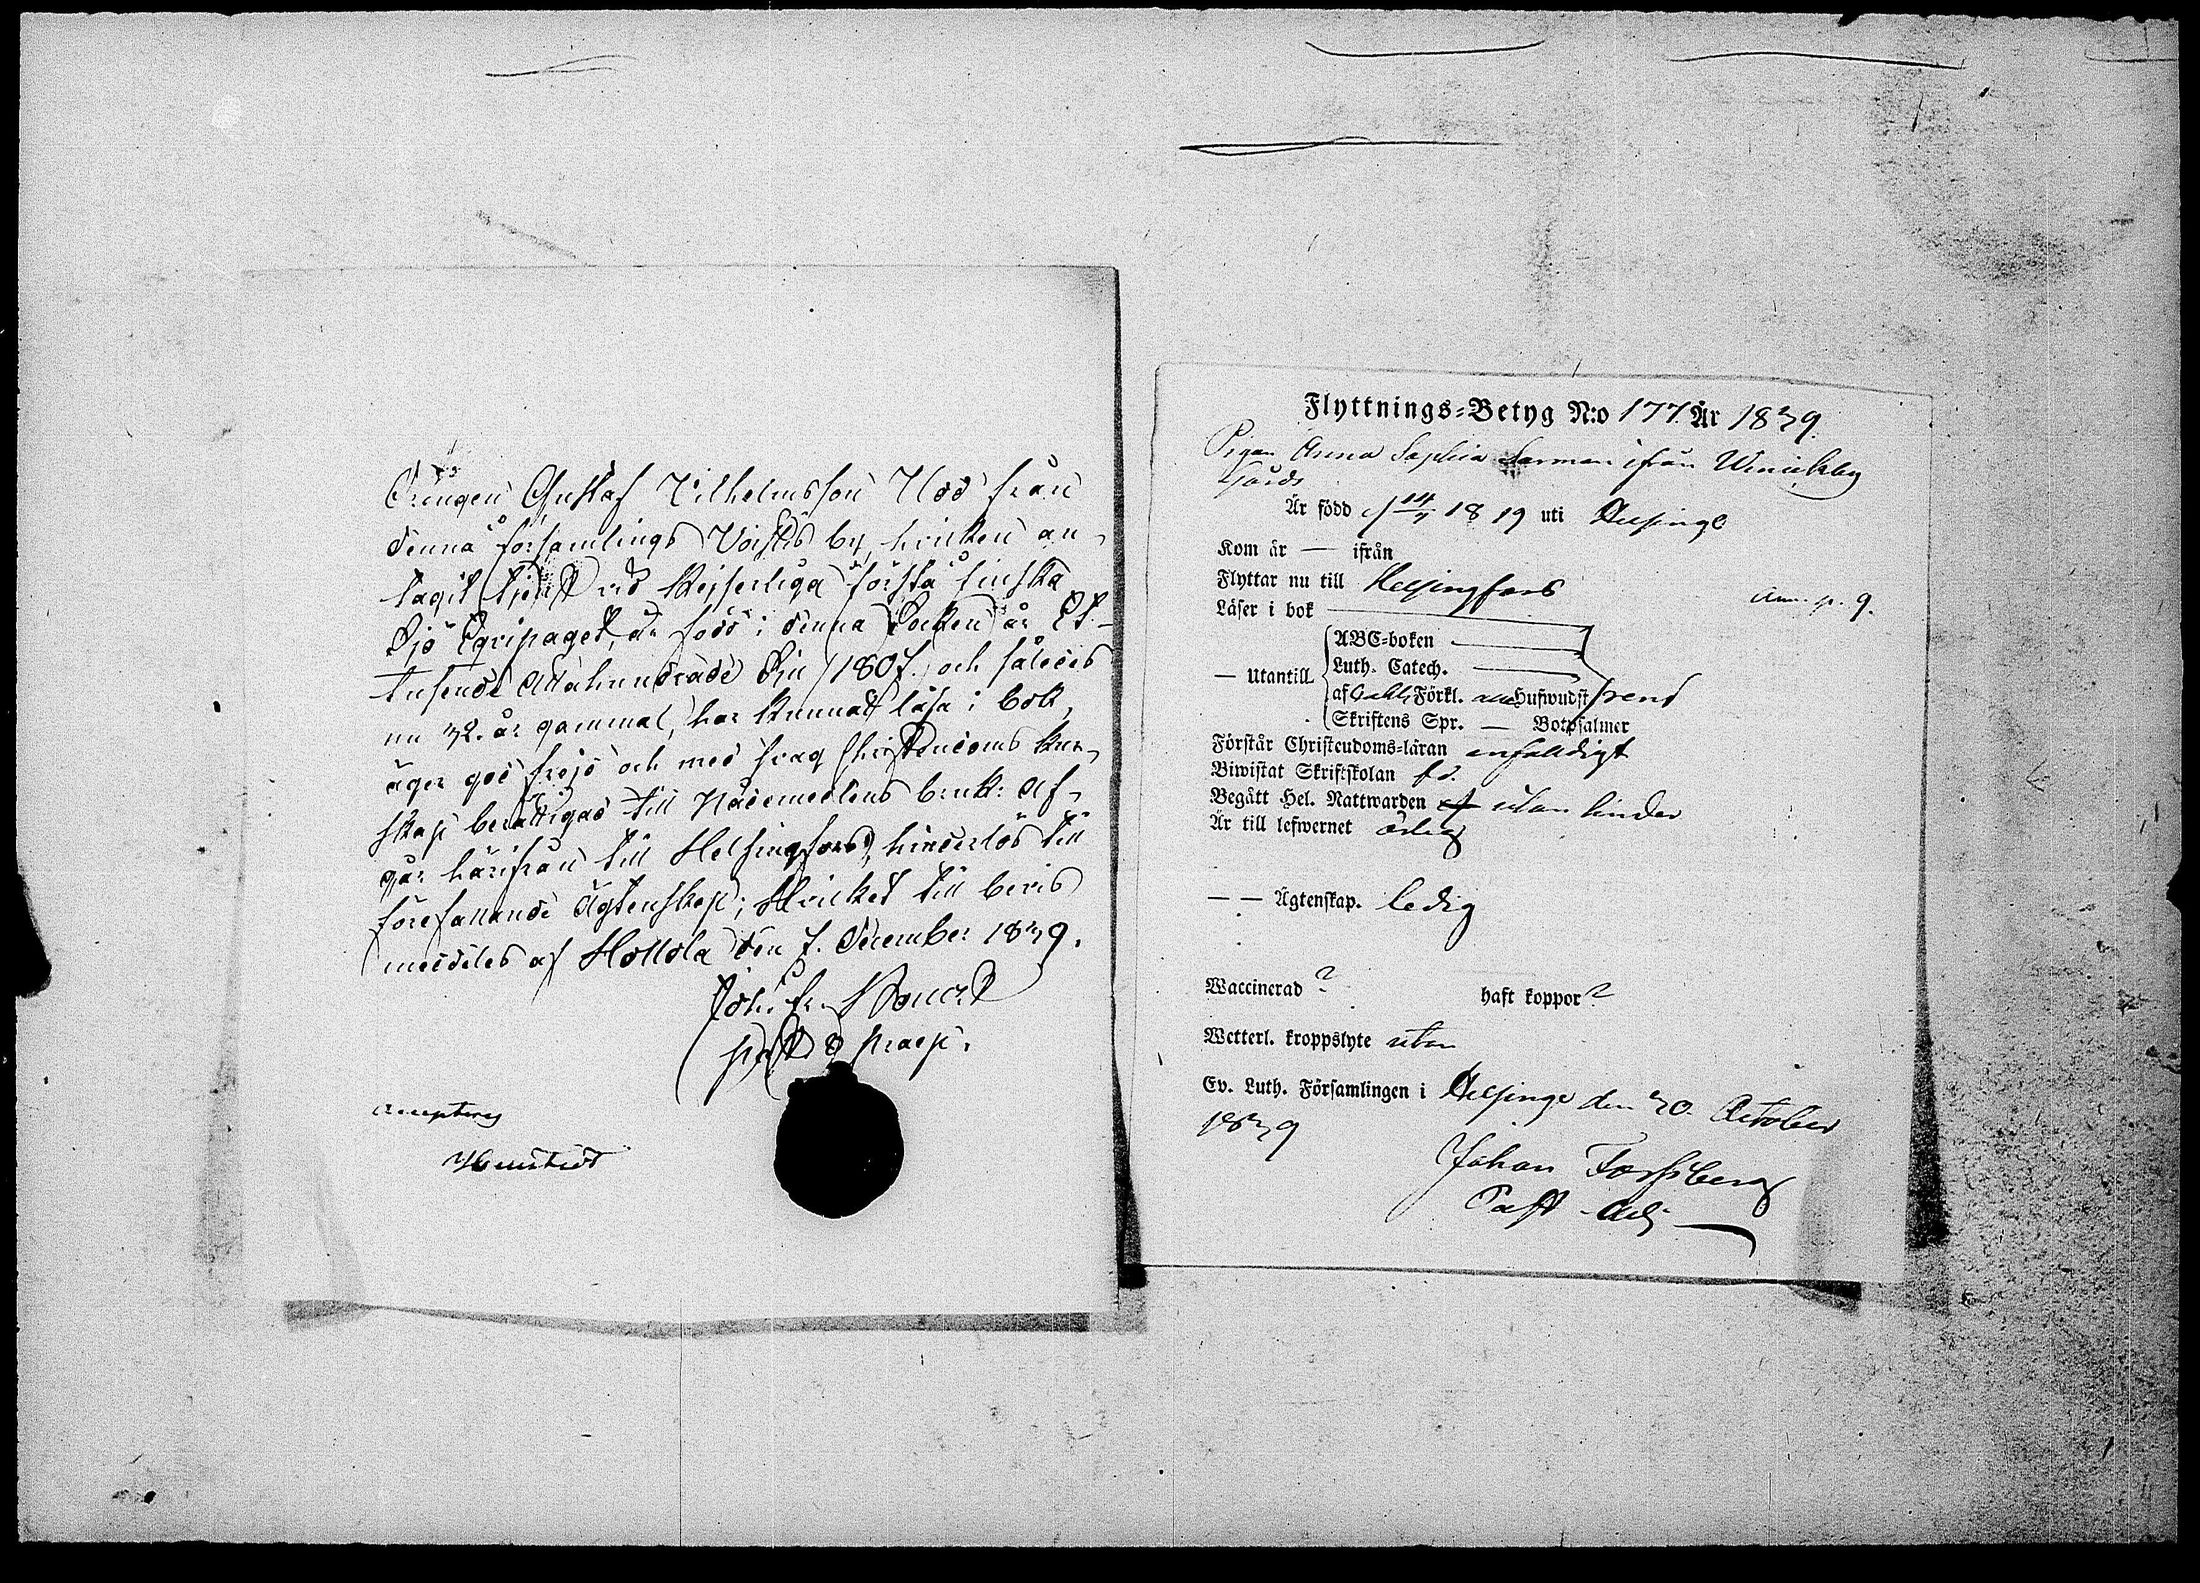 Drängen Gustaf Vilhelmsson Uod från
denna församlings Voistis by, hvilken an-
tagit tjenst vid Kejserliga första finska
Sjö Equipaget, är född i denna Socken år Et-
tusende Åttahundrade Sju /1807./ och således
nu 32. år gammal, har kunnat läsa i bok,
äger god frejd och med svag Christendoms kun-
skap berättigad till Nådemedlens bruk: Af-
går härifrån till Helsingfors, hinderlös till
förefallande Ägtenskap; Hvilket till bevis
meddelas af Hollola den 7. December 1839.
Joh. Fr.
past & praep.
Flyttnings-Betyg N:o 177. År 1839.
Pigan Anna Sophia ifrån Winickby
Gård
Är född d 14/7 1819 uti Helsinge
Kom år — ifrån
Flyttar nu till Helsingfors
Ann. p. 9.
Läser i bok
ABC-boken
Luth. Catech.
— Utantill
af Förkl. Hufwudst
Skriftens Spr. — Botpsalmer
Förstår Christendoms-läran enfalldigt
Biwistat Skriftskolan
Begått Hel. Nattwarden utan hinder
Är till lefwernet ärlig
— — Ägtenskap. ledig
Waccinerad ? haft koppor ?
Wetterl. kroppslyte utan
Ev. Luth. Församlingen i Helsinge den 30. October
1839
Johan Forssberg
Past. Adj.